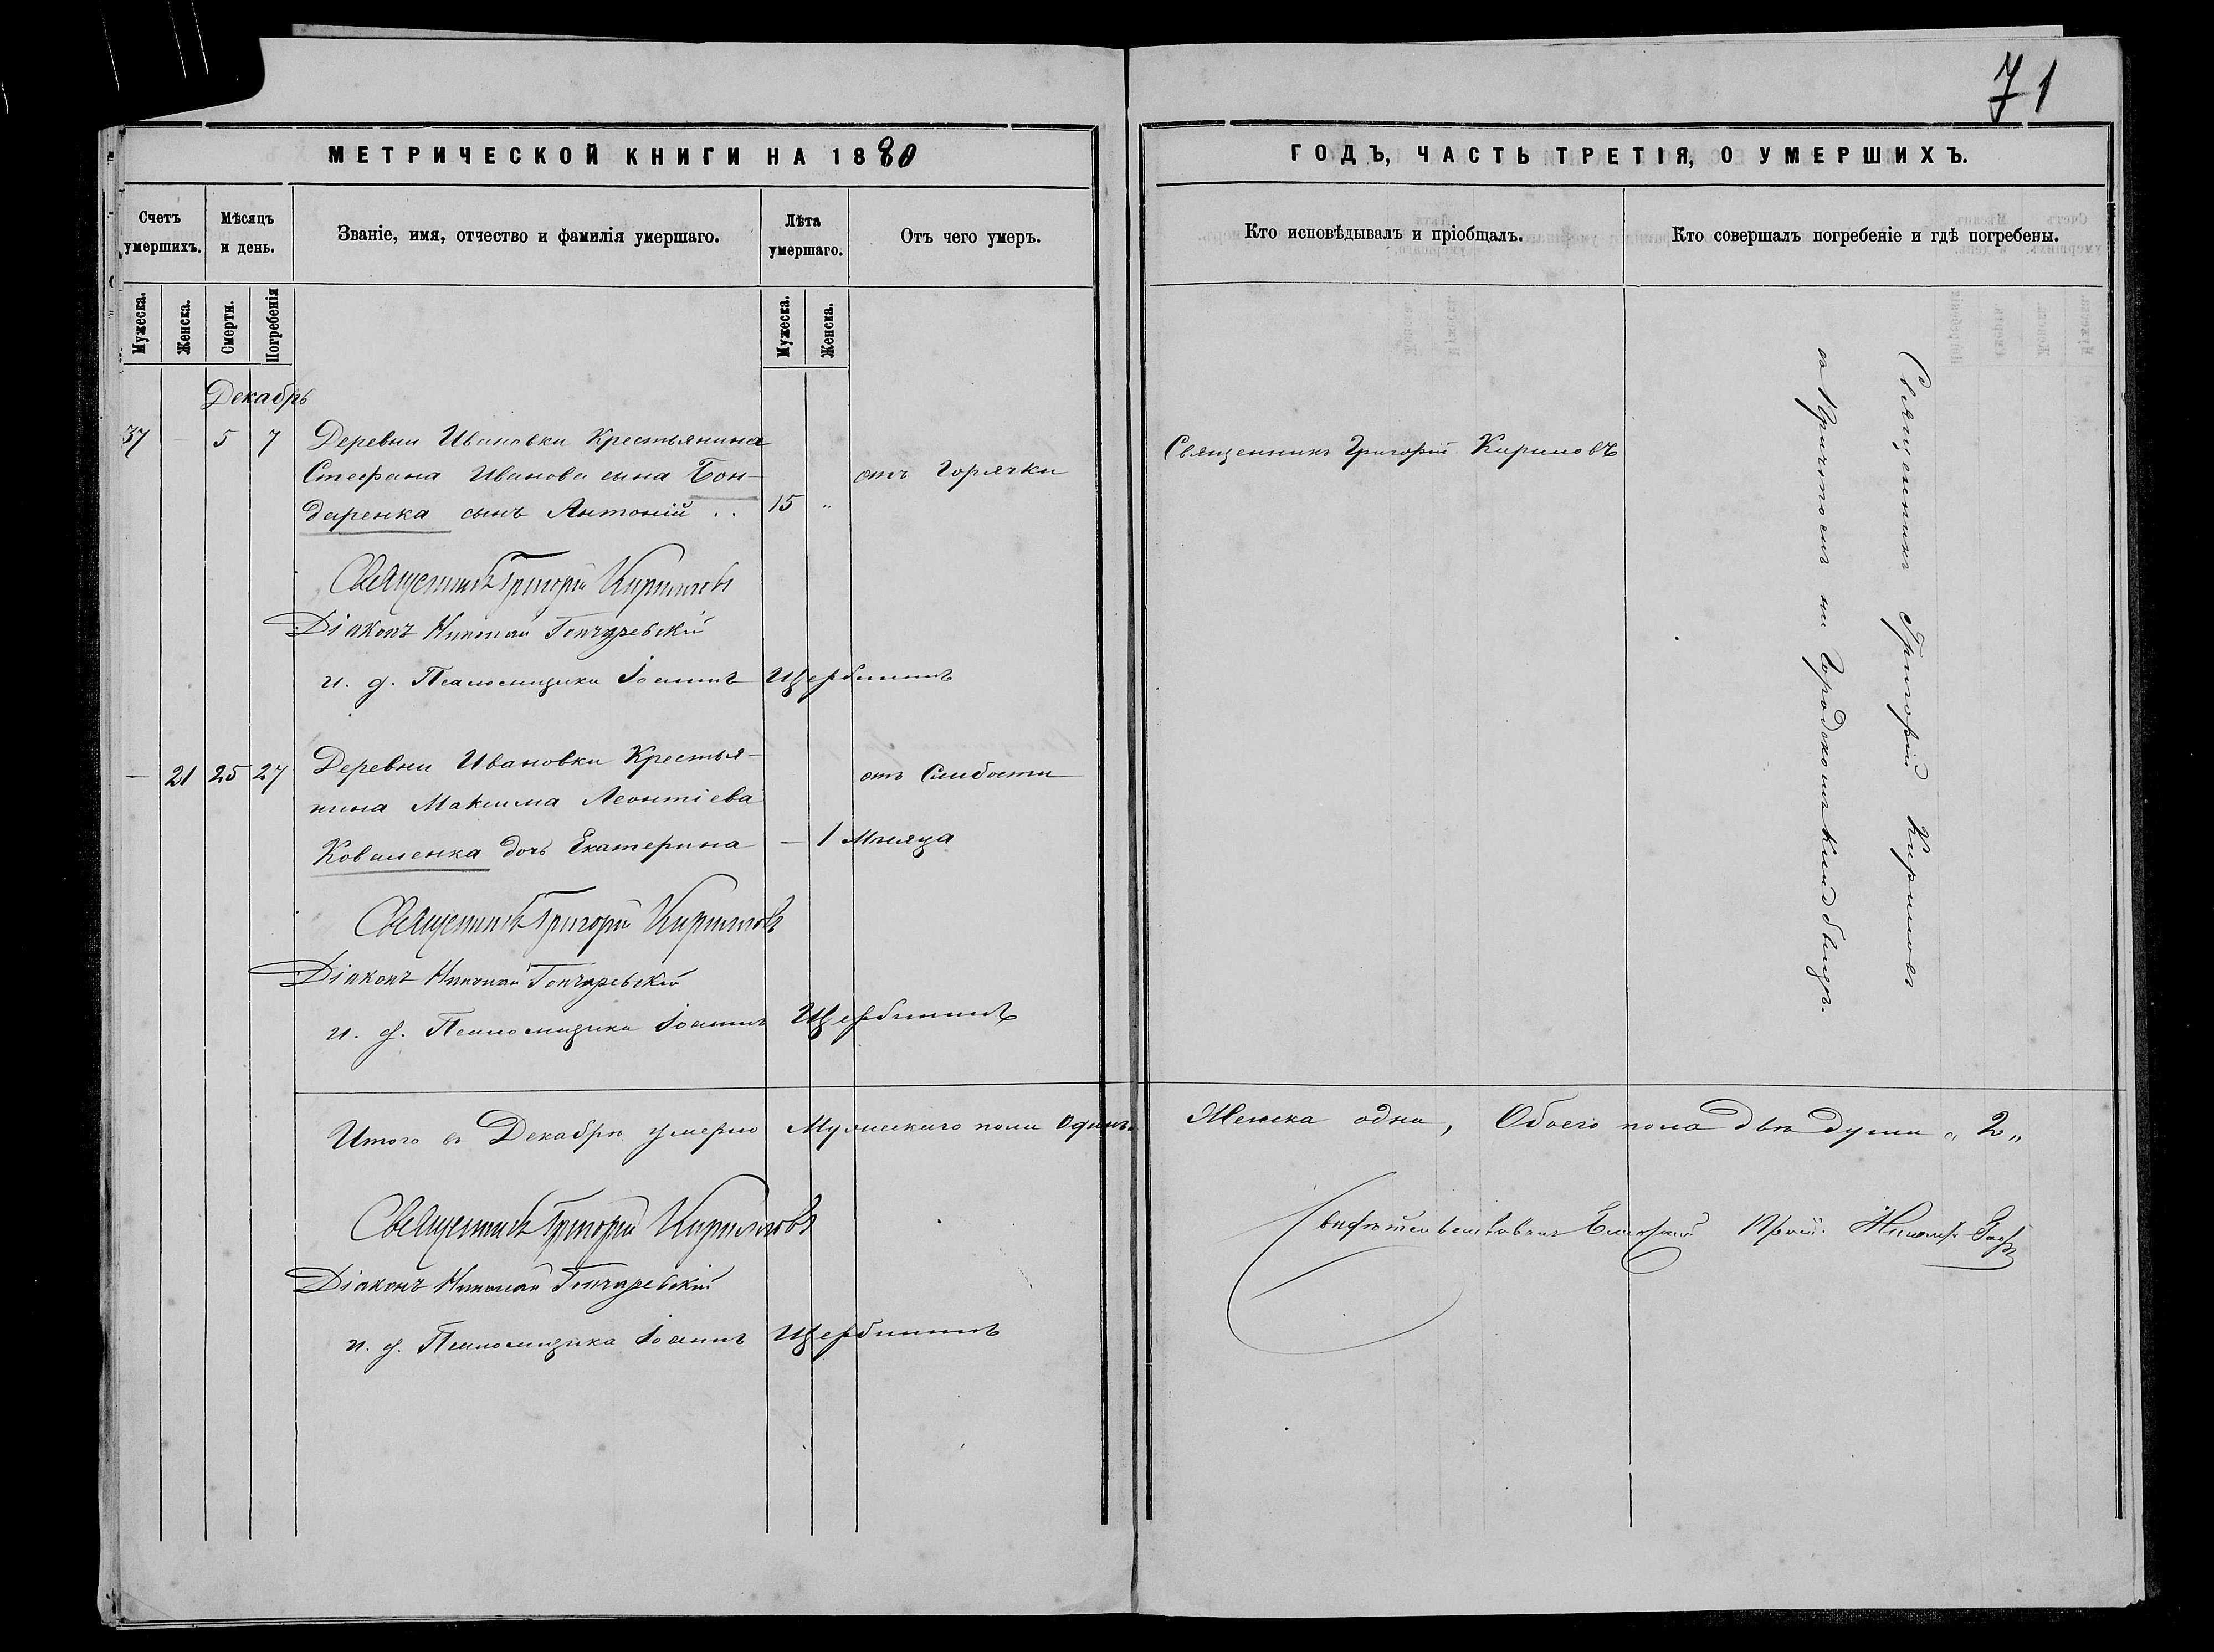 71
МЕТРИЧЕСКОЙ КНИГИ НА 1880
ГОДЪ, ЧАСТЬ ТРЕТІЯ, О УМЕРШИХЪ.
Счетъ умершихъ.
Мѣсяцъ и день.
Званіе, имя, отчество и фамилія умершаго.
Лѣта умершаго.
Отъ чего умеръ.
Кто исповѣдывалъ и пріобщалъ.
Кто совершалъ погребеніе и гдѣ погребены.
Мужеска.
Женска.
Смерти.
Погребенія
Мужеска.
Женска.
Декабрь
37 – 5 7 Деревни Ивановки Крестьянина
Священникъ Григорій Кириловъ
Стефана Иванова сына Бон-
отъ Горячки
даренка сынъ Антоній . . 15 „
Священникъ Григорій Кириловъ
Діаконъ Николай Гончаревскій
и. д. Псаломщика Іоаннъ Щербининъ
– 21 25 27 Деревни Ивановки Крестья-
отъ Слабости
нина Максима Леонтіева
Коваленка дочь Екатерина – 1 Мѣсяца
Священникъ Григорій Кириловъ
Діаконъ Николай Гончаревскій
и. д. Псаломщика Іоаннъ Щербининъ
Священникъ Григорій Кириловъ
съ Причтомъ на Городскомъ Кладбищѣ.
Итого въ Декабрѣ умерло Мужескаго пола Одинъ. Женска одна, Обоего пола двѣ души „ 2 „
Священникъ Григорій Кириловъ
Діаконъ Николай Гончаревскій
и. д. Псаломщика Іоаннъ Щербининъ
Свидѣтельствовалъ